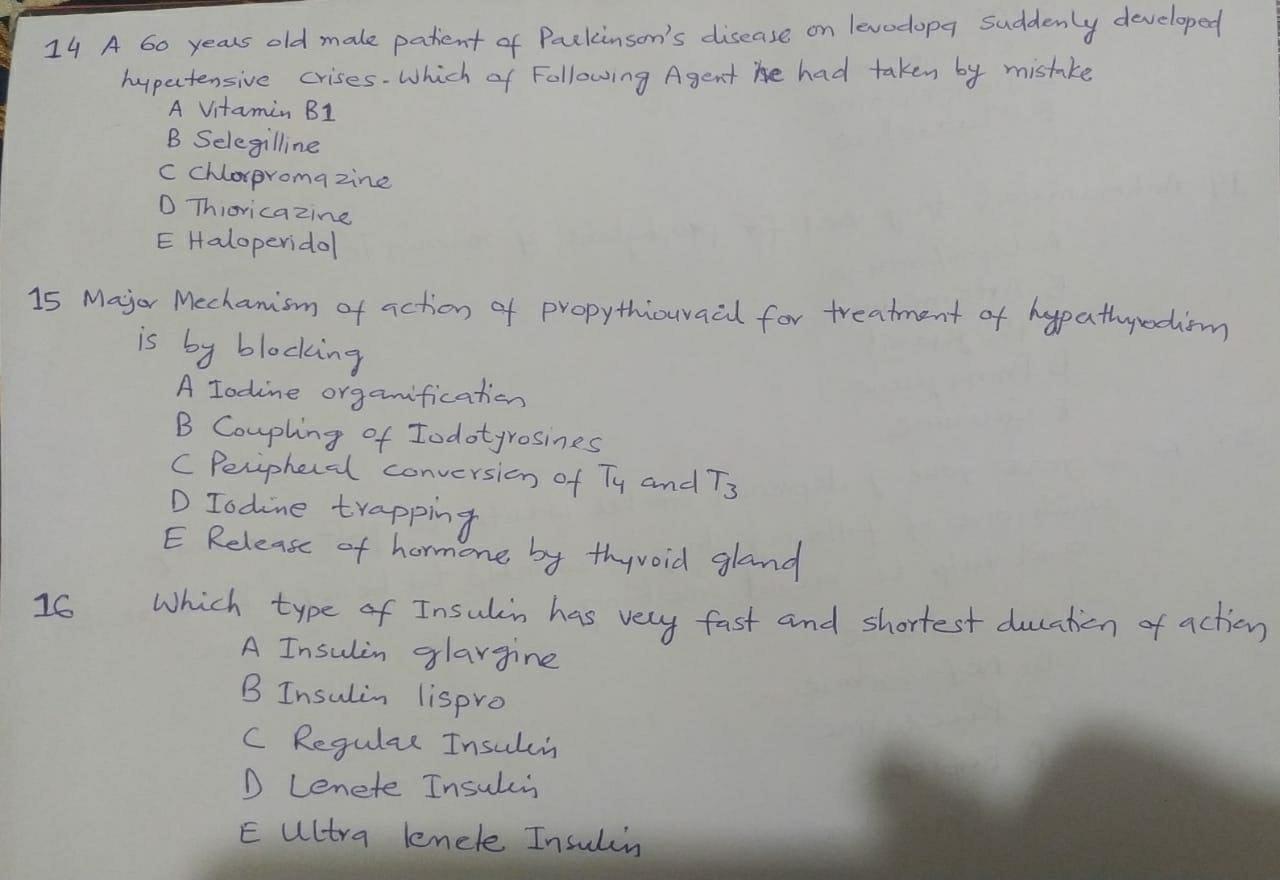 14 A 60 years old male patient of Parkinson's disease on levodopa suddenly developed
hypertensive crises. Which of Following Agent he had taken by mistake
A Vitamin B1
B Selegilline
C Chlorpromazine
D Thioricazine
E Haloperidol
15 Major Mechanism of action of propythiouracil for treatment of hyperthyrodism
is by blocking
A Iodine organification
B Coupling of Iodotyrosines
C Peripheral conversion of T4 and T3
D Iodine trapping
E Release of hormone by thyroid gland
16 Which type of Insulin has very fast and shortest duration of action
A Insulin glargine
B Insulin lispro
C Regular Insulin
D Lenete Insulin
E Ultra lenete Insulin